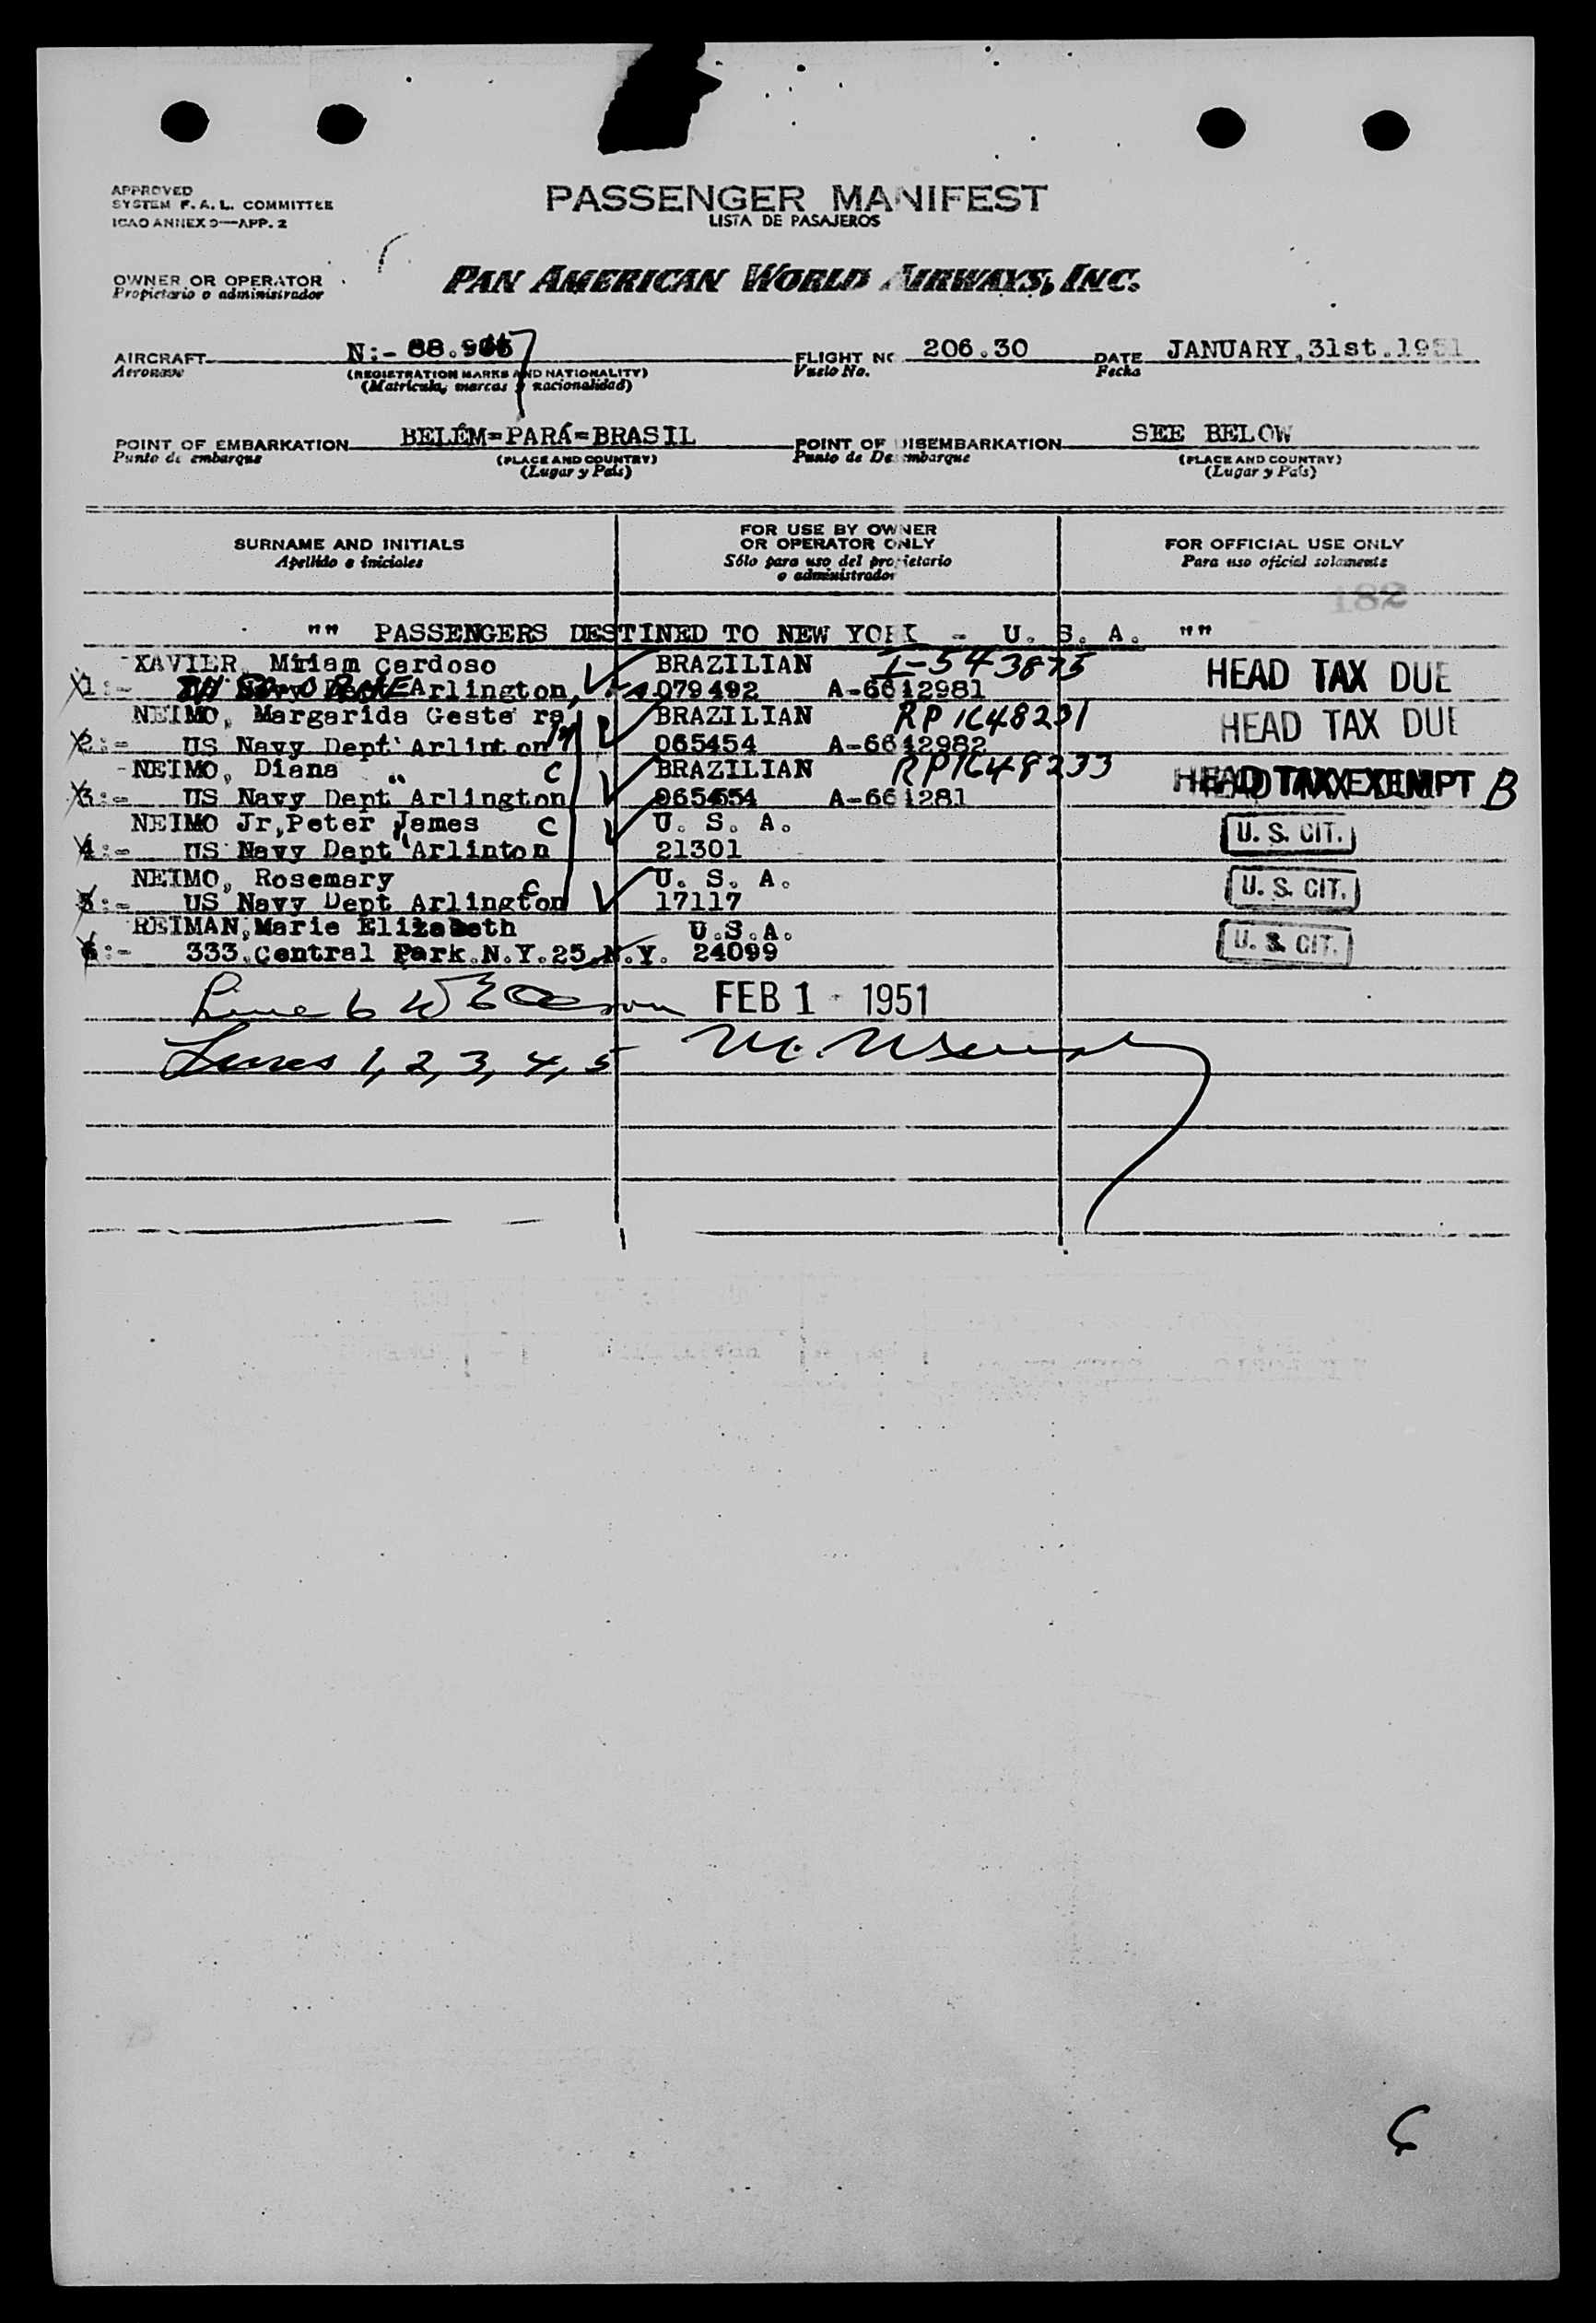 APPROVED
SYSTEM F.A.L. COMMITTEE
ICAO ANNEX 9—APP. 2
PASSENGER MANIFEST
LISTA DE PASAJEROS
OWNER OR OPERATOR
Propietario o administrador
PAN AMERICAN WORLD AIRWAYS, INC.
AIRCRAFT N:- 88. FLIGHT NO 206.30 DATE JANUARY,31st.1951
Aeronave (REGISTRATION MARKS AND NATIONALITY) Vuelo No. Fecha
(Matrícula, marcas y nacionalidad)
POINT OF EMBARKATION BELÉM=PARÁ=BRASIL POINT OF DISEMBARKATION SEE BELOW
Punto de embarque (PLACE AND COUNTRY) Punto de Desembarque (PLACE AND COUNTRY)
(Lugar y País) (Lugar y País)
SURNAME AND INITIALS FOR USE BY OWNER OR OPERATOR ONLY FOR OFFICIAL USE ONLY
Apellido e iniciales Sólo para uso del propietario o administrador Para uso oficial solamente
182
"" PASSENGERS DESTINED TO NEW YORK - U. S. A. ""
XAVIER, Miriam Cardoso BRAZILIAN I-543875 HEAD TAX DUE
1:- Arlington, 079492 A-6612981
NEIMO, Margarida Geste ra BRAZILIAN RP 1648231 HEAD TAX DUE
2:- US Navy Dept Arlint on 065454 A-6612982
NEIMO, Diana " C BRAZILIAN RP1648233 HEAD TAX EXEMPT B
3:- US Navy Dept Arlington A-661281
NEIMO Jr,Peter James C U. S. A. U. S. CIT.
4:- US Navy Dept Arlinton 21301
NEIMO, Rosemary C U. S. A. U. S. CIT.
5:- US Navy Dept Arlington 17117
REIMAN,Marie Elizabeth U.S.A. U. S. CIT.
6:- 333.Central Park.N.Y.25.N.Y. 24099
Line 6 FEB 1 - 1951
Lines 1, 2, 3, 4, 5